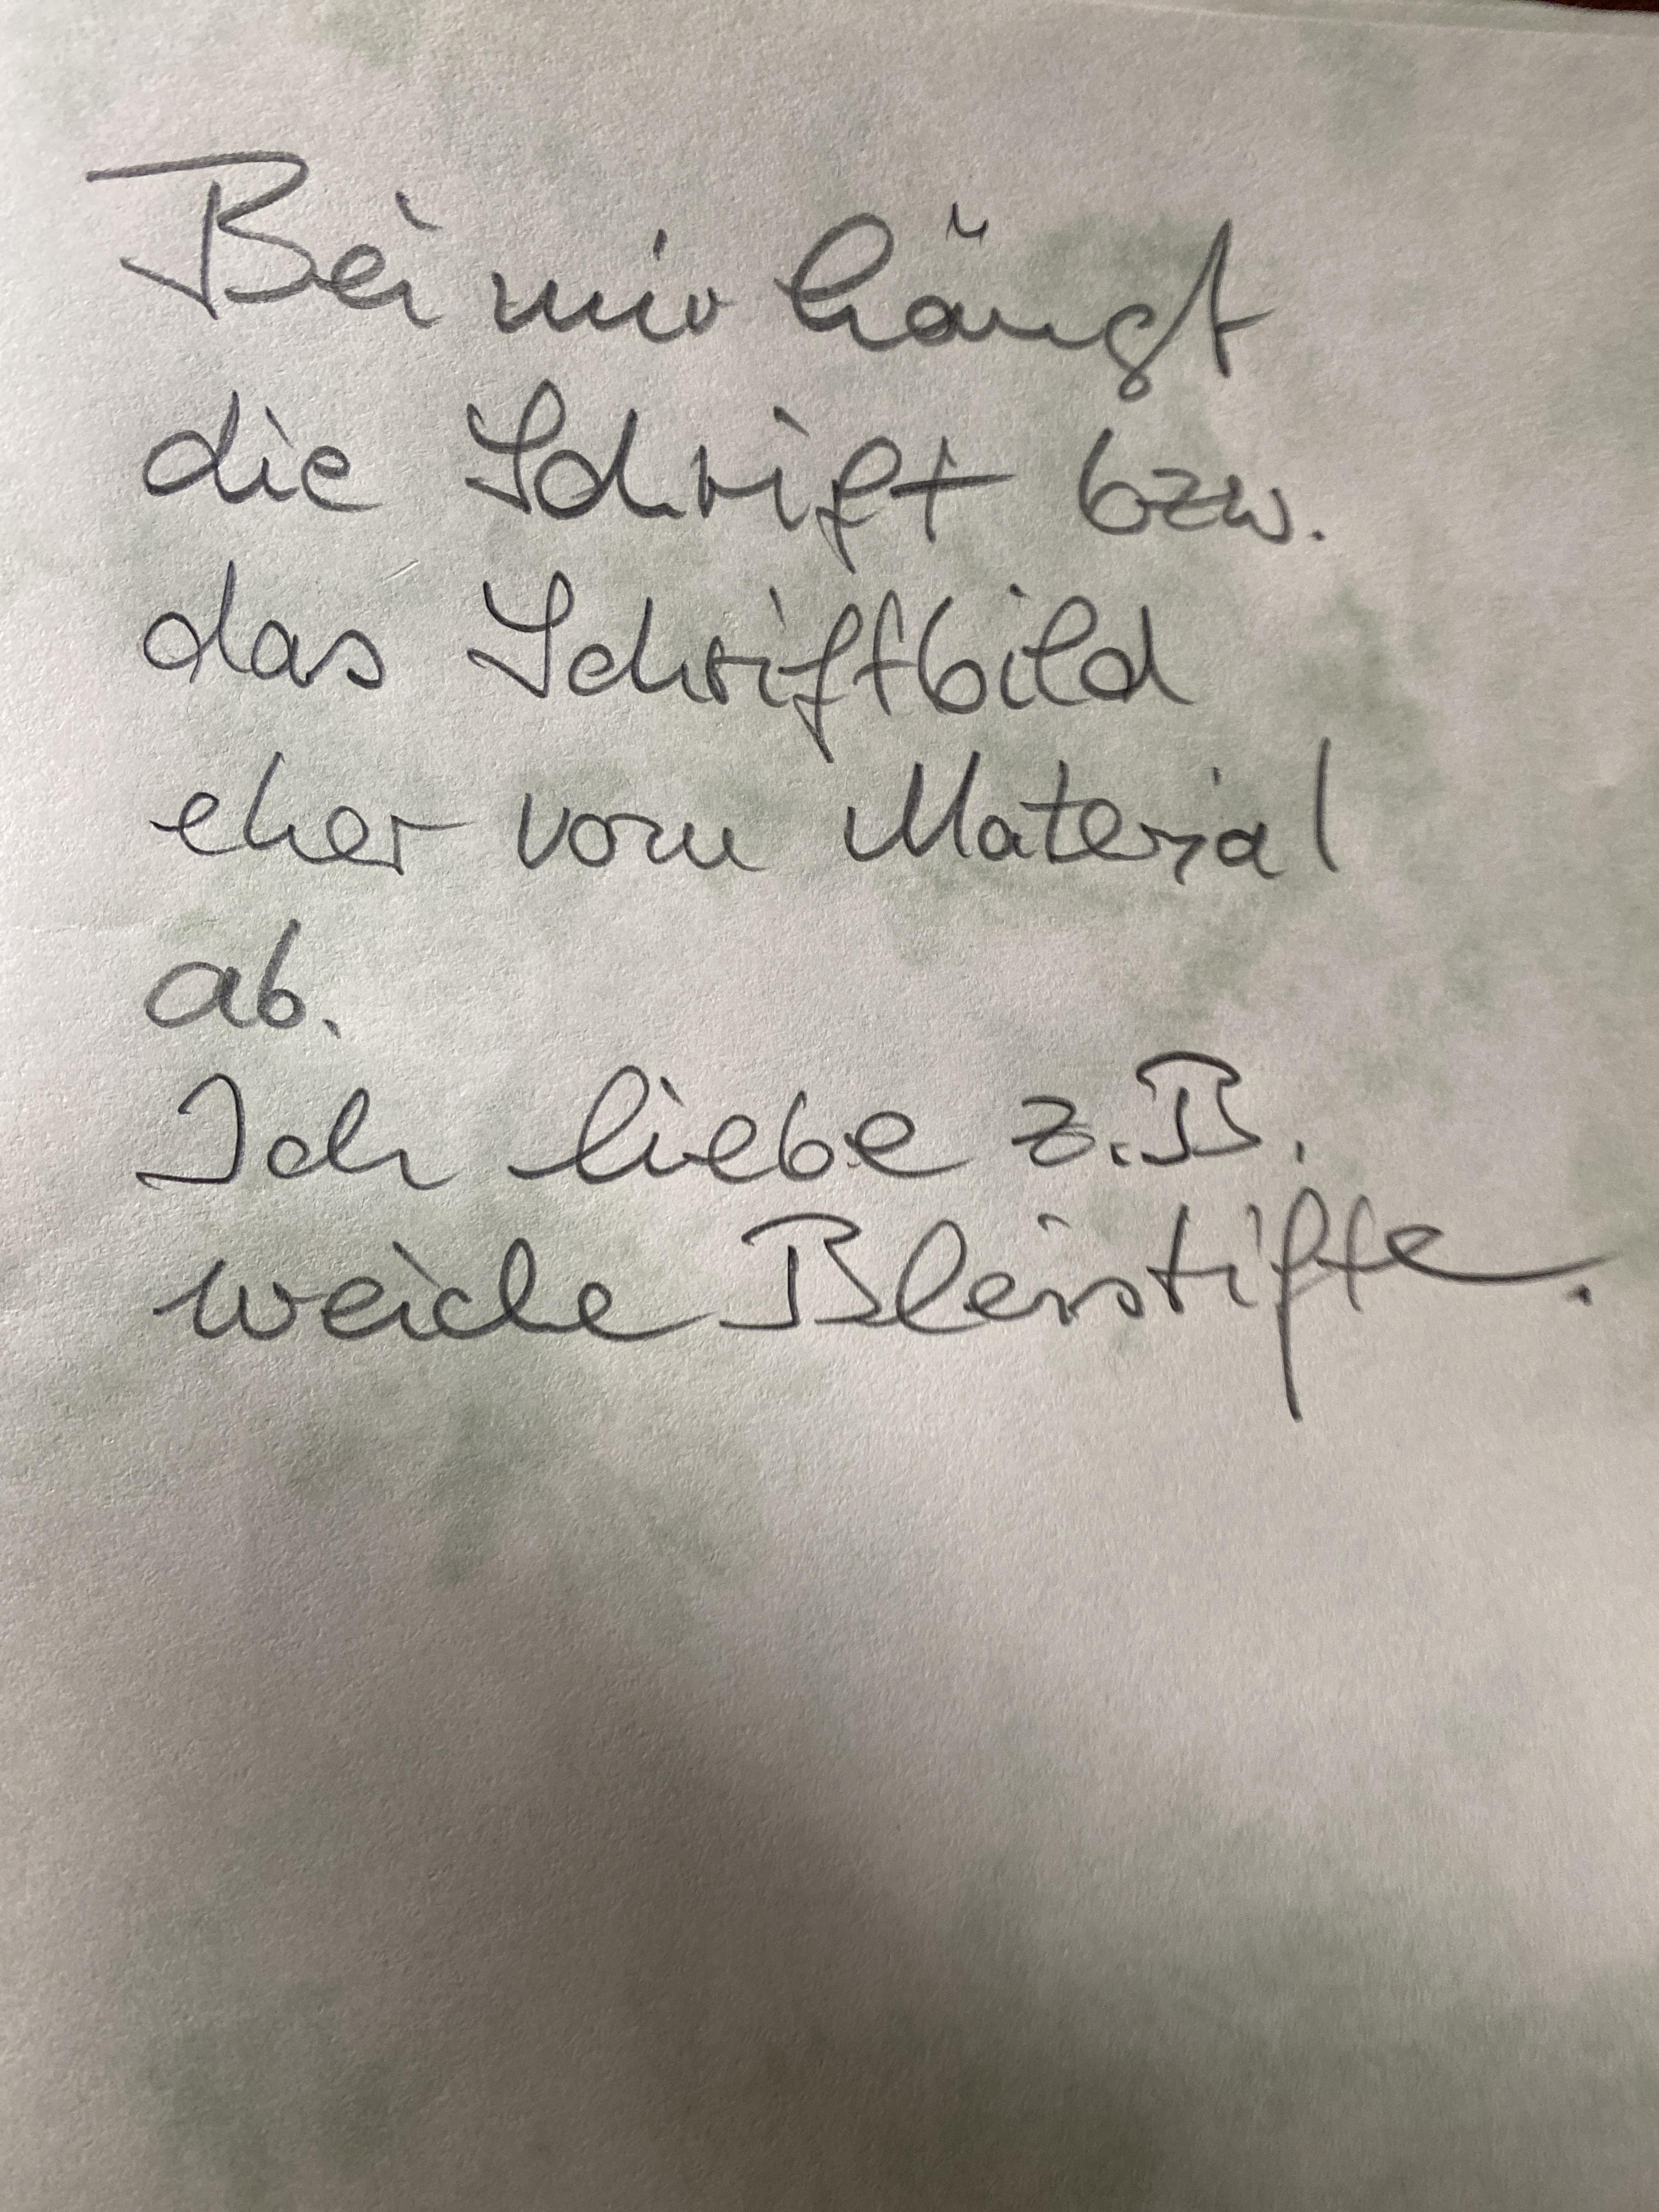 Bei mir hängt
die Schrift bzw.
das Schriftbild
eher vom Material
ab.
Ich liebe z.B.
weiche Bleistifte.